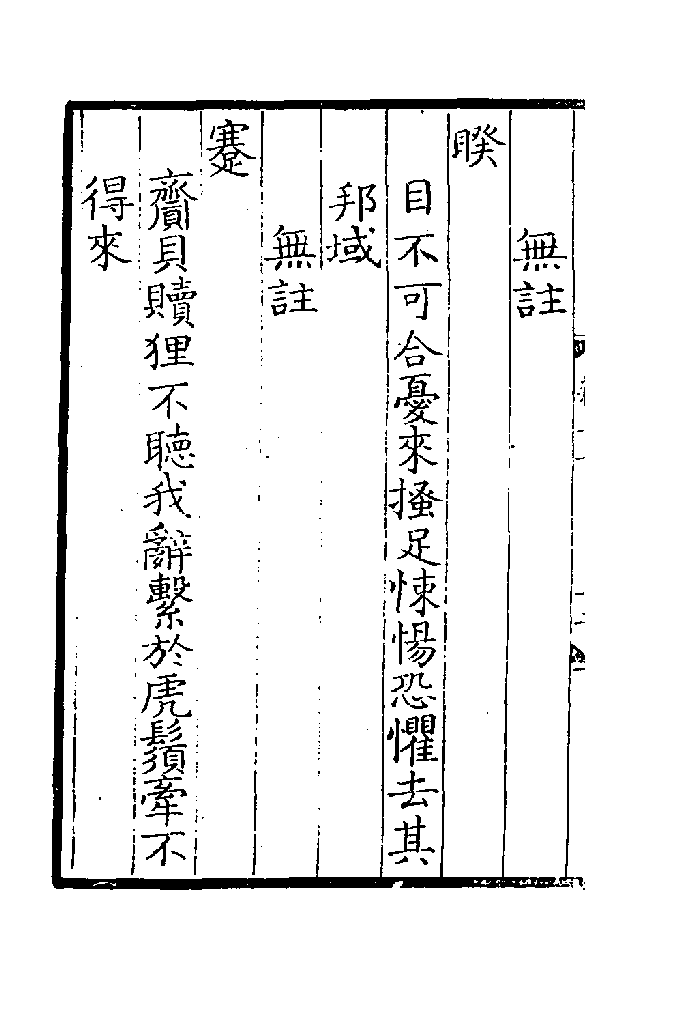 無註
睽
目不可合憂來搔足悚惕恐懼去其
邦域
無註
蹇
齎貝贖狸不聽我辭繫於虎鬚牽不
得來